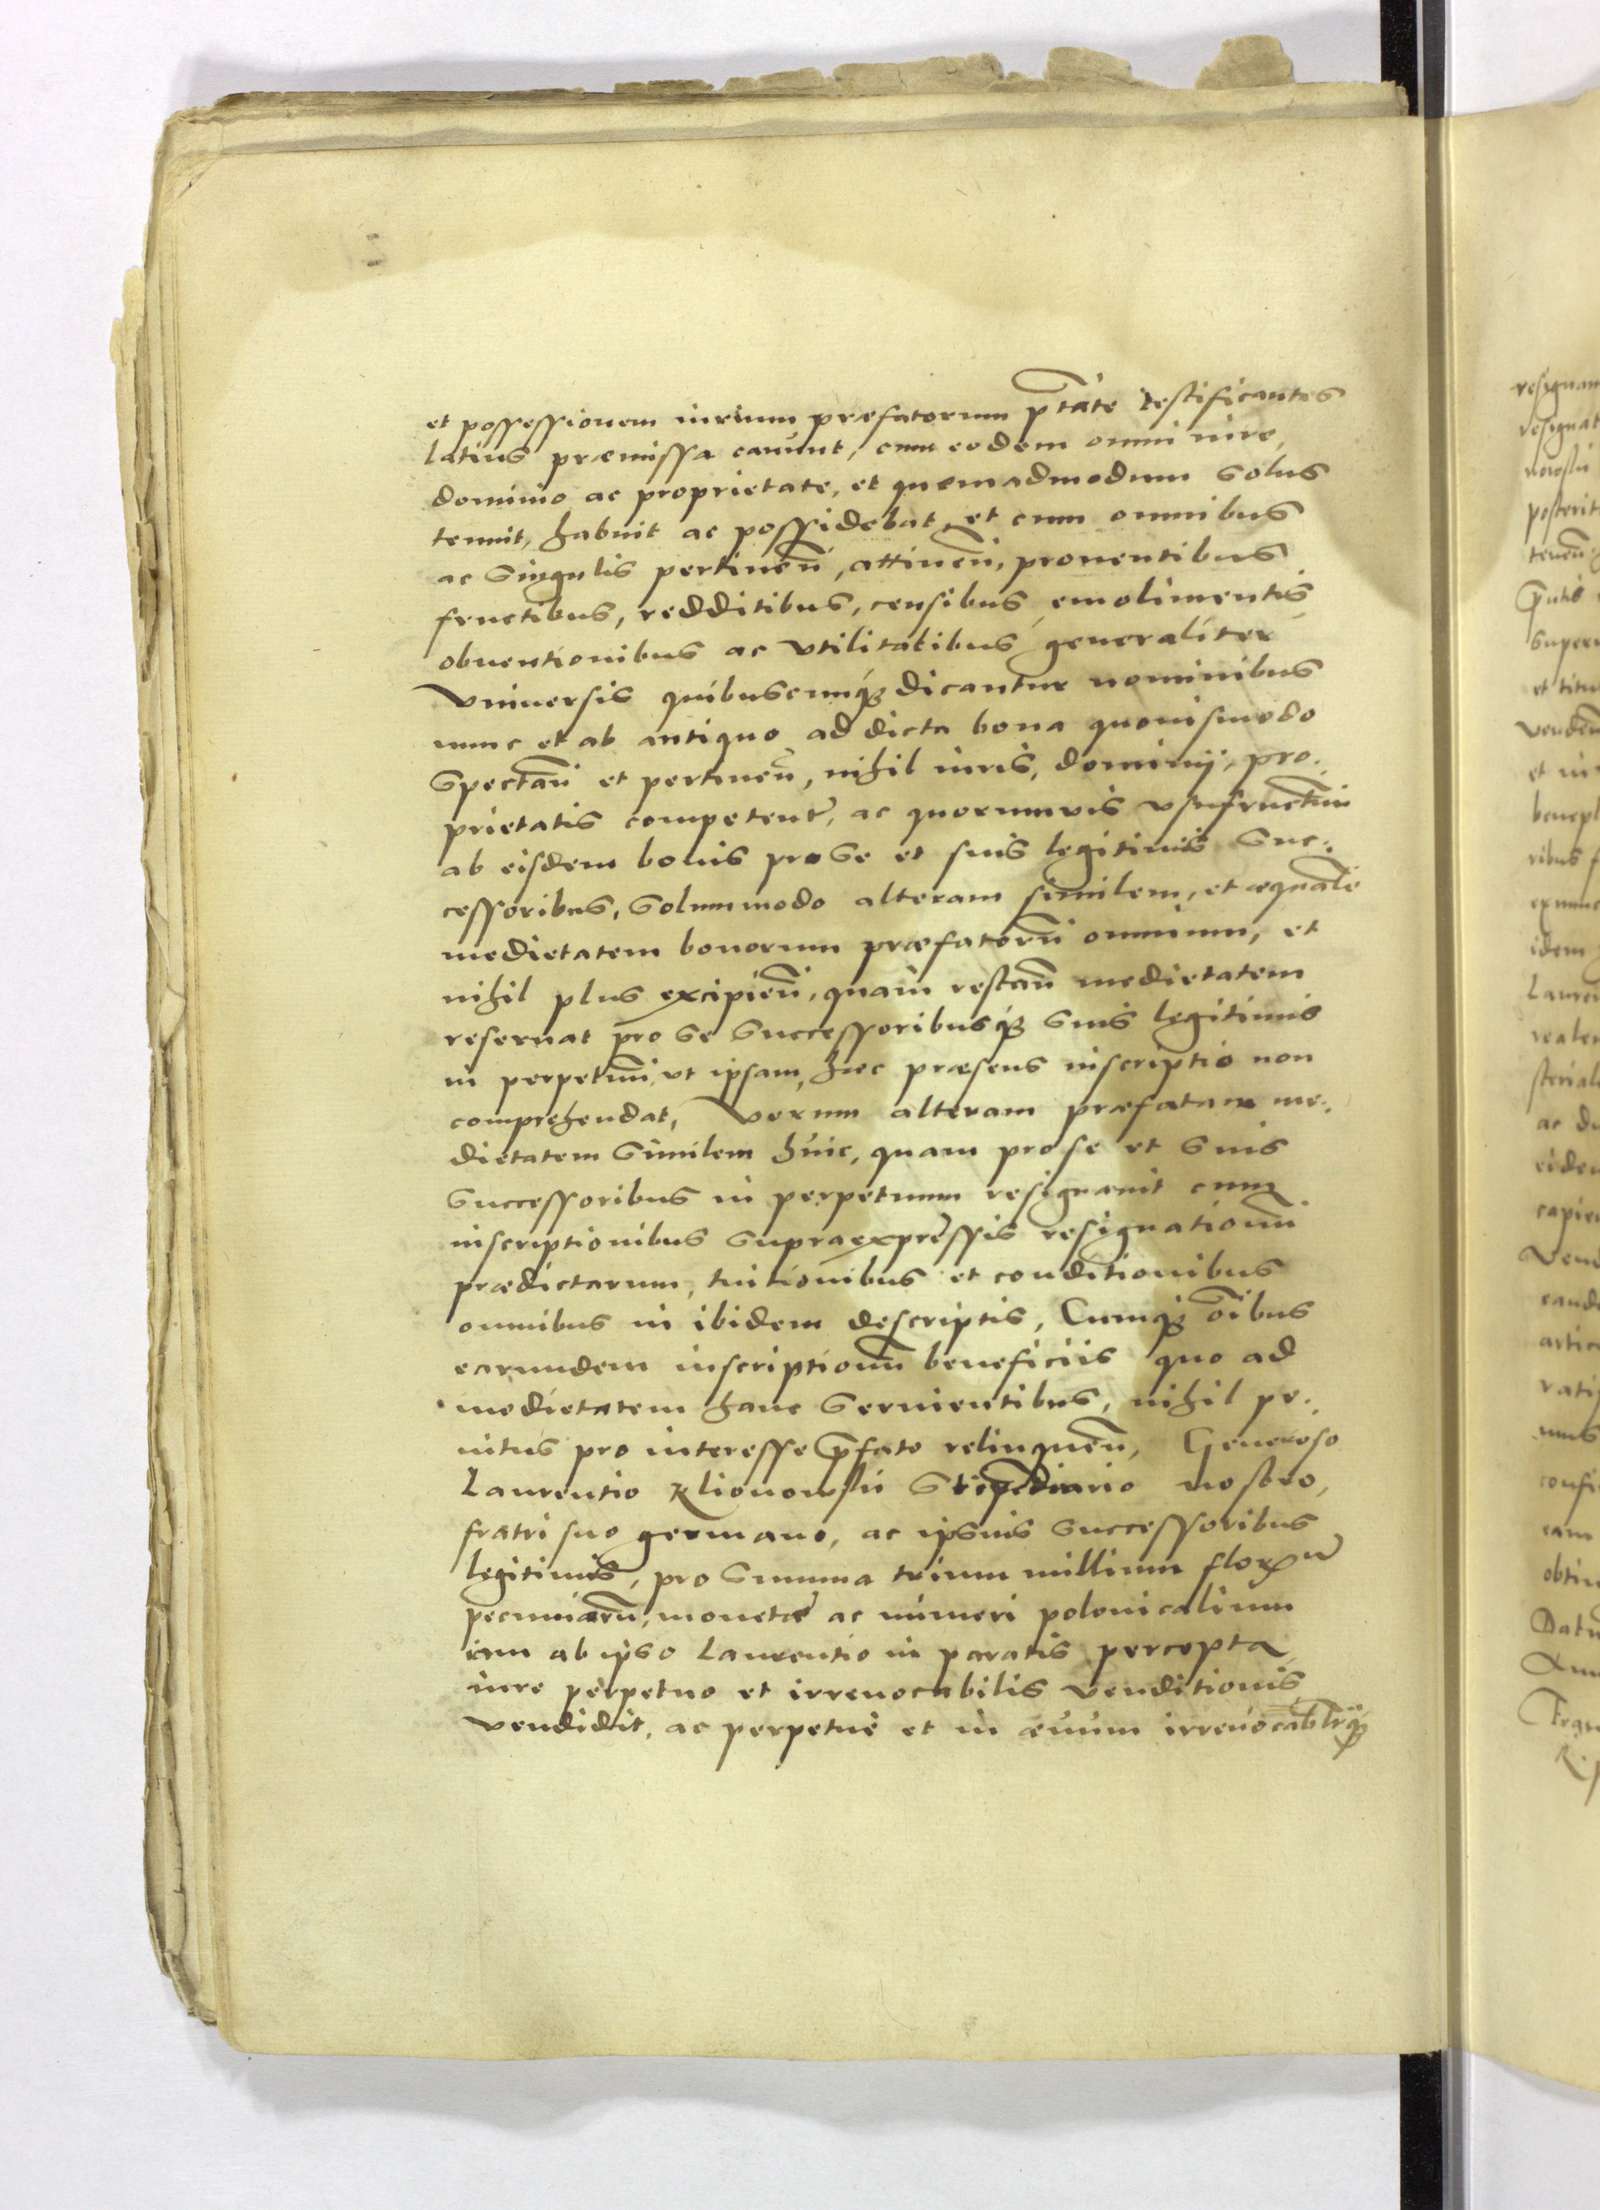 et possessionem iurium præfatorum ptāte testificantes
latius præmissa cauunt, cum eodem omni iure,
dominio ac proprietate, et quemadmodum solus
tenuit, habuit ac possidebat, et cum omnibus
ac singulis pertinen̄, attinen̄, prouentibus
fructibus, redditibus, censibus, emolimentis
obuentionibus ac vtilitatibus generaliter
vniuersis quibuscunq₃ dicantur nominibus
nunc et ab antiquo ad dicta bona quouismodo
spectan̄ et pertinen̄, nihil iuris, dominij, pro:
prietatis competen̄t, ac quorumvis vsufructuū
ab eisdem bonis pro se et suis legitimis suc:
cessoribus, solummodo alteram similem, et æqualē
medietatem bonorum præfatorū omnium, et
nihil plus excipien̄, quam restan̄ medietatem
reseruat pro se successoribusq₃ suis legitimis
in perpetuū, vt ipsam, hæc præsens inscriptio non
comprehendat, verum alteram præfatam me:
dietatem similem huic, quam pro se et suis
successoribus in perpetuum resignauit cum
inscriptionibus supraexpressis resignationū
prædictarum, tuitionibus et conditionibus
omnibus in ibidem descriptis, Cumq₃ oībus
earundem inscriptionū beneficiis quo ad
medietatem hanc seruientibus, nihil pe:
nitus pro interesse p̄fato relinquen̄, Generoso
Laurentio Klionowskii stipēdiario nostro,
fratri suo germano, ac ipsius successoribus
legitimis, pro summa trium millium flor
pecuniarū, monetæ ac numeri polonicalium
iam ab ipso Laurentio in paratis percepta
iure perpetuo et irreuocabilis venditionis
vendidit, ac perpetuè et in æuum irreuocabłrq₃